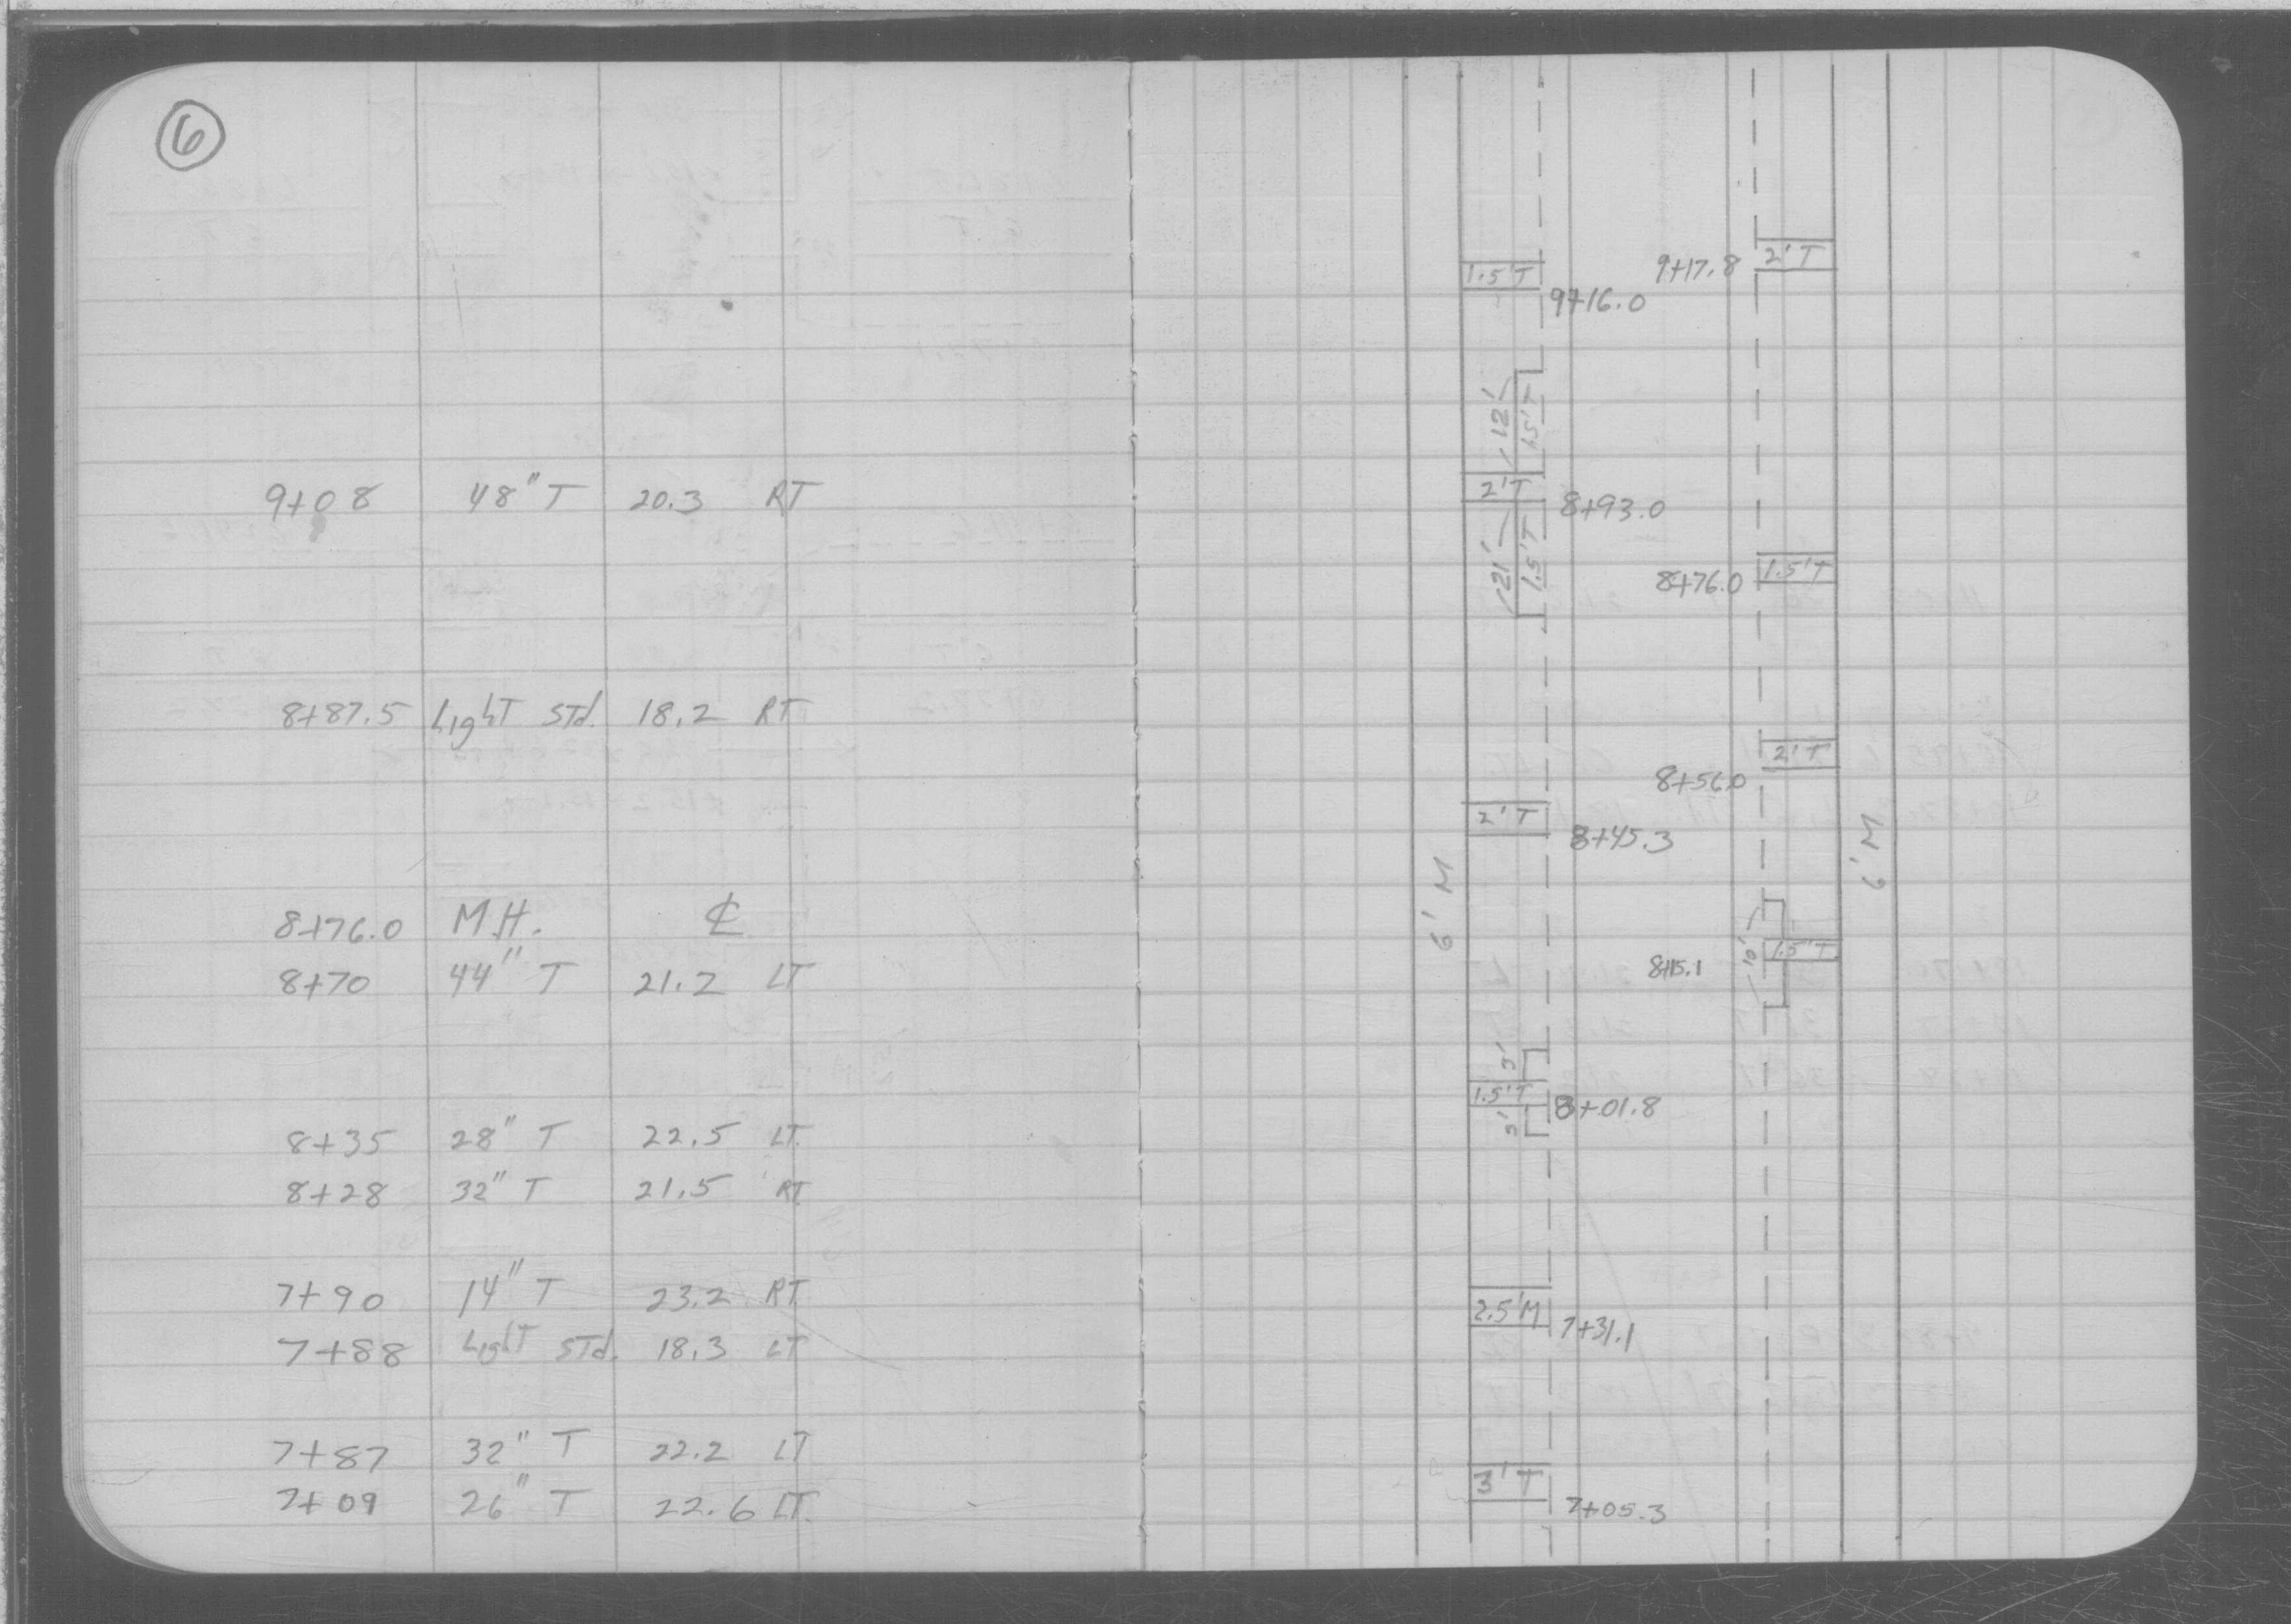 6
9+08 48" T 20.3 RT
8+87.5 Light STd. 18.2 RT
8+76.0 M.H. ℄
8+70 44" T 21.2 LT
8+35 28" T 22.5 LT.
8+28 32" T 21.5 RT
7+90 14" T 23.2 RT
7+88 Light STd. 18.3 LT
7+87 32" T 22.2 LT
7+09 26" T 22.6 LT.
9+17.8 2' T
1.5' T 9+16.0
12' 1.5' T
2' T 8+93.0
21' 1.5' T
8+76.0 1.5' T
8+56.0 2' T
2' T 8+45.3
6' M
6' M
8+15.1 10' 1.5' T
3'
1.5' T 8+01.8
3'
2.5' M 7+31.1
3' T 7+05.3